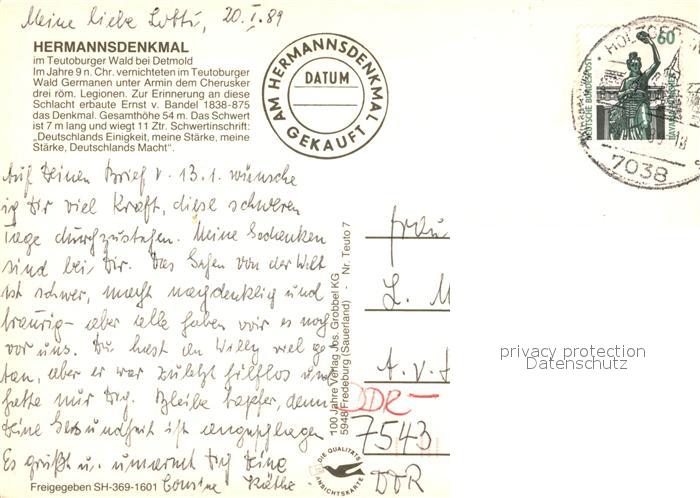 Meine liebe Lotti, 20.I.89
HERMANNSDENKMAL
im Teutoburger Wald bei Detmold
Im Jahre 9 n. Chr. vernichteten im Teutoburger
Wald Germanen unter Armin dem Cherusker
drei röm. Legionen. Zur Erinnerung an diese
Schlacht erbaute Ernst v. Bandel 1838-875
das Denkmal. Gesamthöhe 54 m. Das Schwert
ist 7 m lang und wiegt 11 Ztr. Schwertinschrift:
„Deutschlands Einigkeit, meine Stärke, meine
Stärke, Deutschlands Macht“.
AM HERMANNSDENKMAL
DATUM
GEKAUFT
60
DEUTSCHE BUNDESPOST
7038
Auf Deinen Brief v. 13.1. wünsche
ich Dir viel Kraft, diese schweren
Tage durchzustehen. Meine Gedanken
sind bei Dir. Das Gehen von der Welt
ist schwer, macht nachdenklich und
traurig - aber alle haben wir es noch
vor uns. Du hast an Willy viel ge-
tan, aber er war zuletzt hilflos und
hatte nur Dich. Bleibe tapfer, denn
Deine Gesundheit ist angeschlagen
Es grüßt u. umarmt Dich Deine
Cousine Käthe
Freigegeben SH-369-1601
100 Jahre Verlag Jos. Grobbel KG
5948 Fredeburg (Sauerland) - Nr. Teuto 7
DIE QUALITÄTS
ANSICHTSKARTE
Frau
L. M
A. v. S
DDR-
7543
DDR
privacy protection
Datenschutz